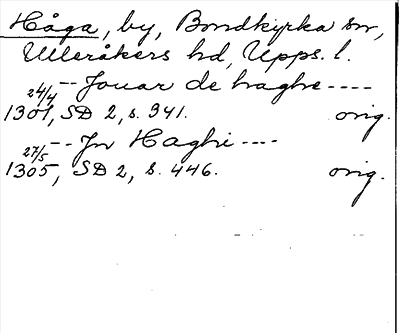 Håga, by, Bondkyrka sn,
Ulleråkers hd, Upps. l.
24/4 -- Jouar de haghe ----
1301, SD 2, s. 341. orig.
27/5 -- Jn Haghi ----
1305, SD 2, s. 446. orig.